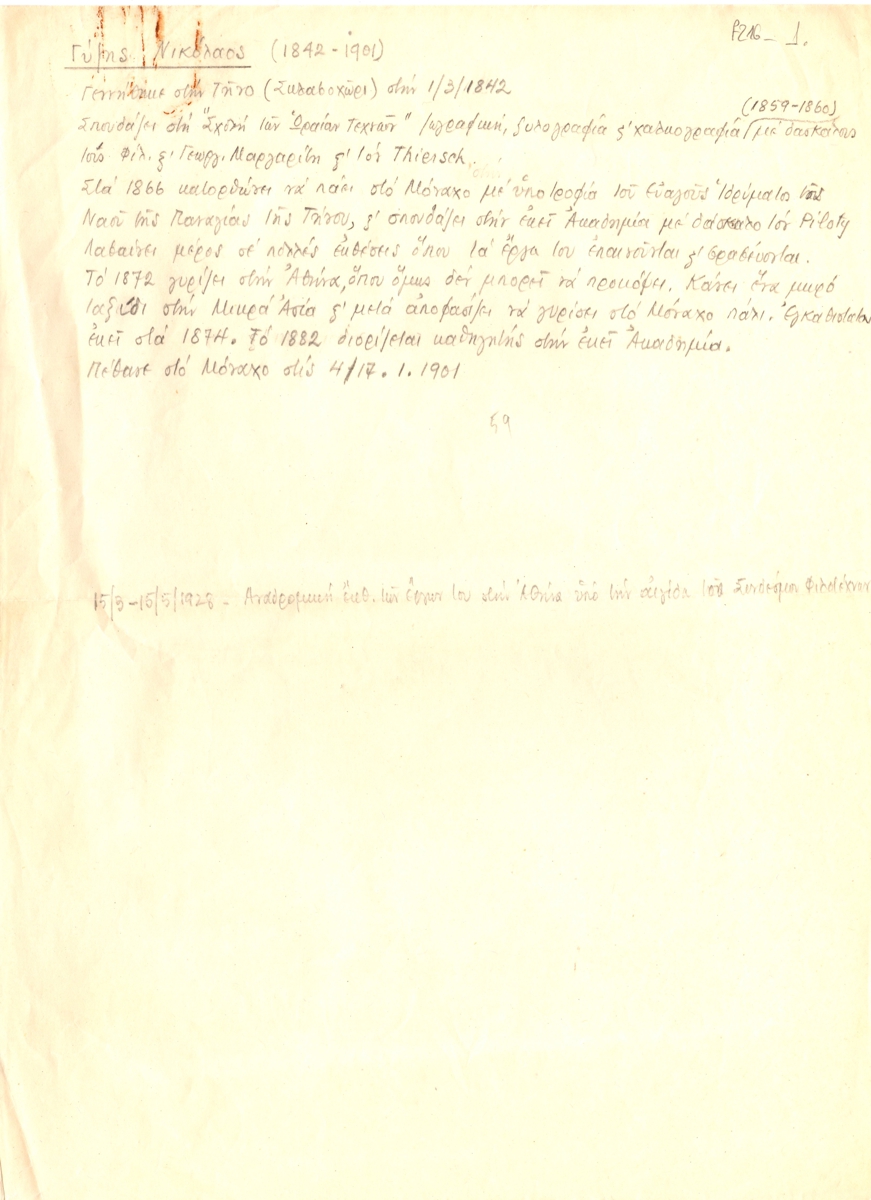 P216 - 1.
Γύζης Νικόλαος (1842-1901)
Γεννήθηκε στήν Τῆνο (Σκλαβοχώρι) στήν 1/3/1842
(1859-1860)
Σπουδάζει στή "Σχολή τῶν Ὡραίων Τεχνῶν" ζωγραφική, ξυλογραφία ϗ' χαλκογραφία μέ δασκάλους
τούς Φιλ. ϗ' Γεωργ. Μαργαρίτη ϗ' τόν Thiersch.
Στά 1866 κατορθώνει νά πάει στό Μόναχο μέ ὑποτροφία τοῦ Εὐαγοῦς Ἱδρύματος τῆς
Ναοῦ τῆς Παναγίας τῆς Τήνου, ϗ' σπουδάζει στήν ἐκεῖ Ἀκαδημία μέ δάσκαλο τόν Piloty
Λαβαίνει μέρος σέ πολλές ἐκθέσεις ὅπου τά ἔργα του ἐπαινοῦνται ϗ' βραβεύονται.
Τό 1872 γυρίζει στήν Ἀθήνα, ὅπου ὅμως δέν μπορεῖ νά προκόψει. Κάνει ἕνα μικρό
ταξίδι στήν Μικρά Ἀσία ϗ' μετά ἀποφασίζει νά γυρίσει στό Μόναχο πάλι. Ἐγκαθίσταται
ἐκεῖ στά 1874. Τό 1882 διορίζεται καθηγητής στήν ἐκεῖ Ἀκαδημία.
Πέθανε στό Μόναχο στίς 4/17.1.1901
59
15/3-15/5/1928 - Ἀναδρομική ἔκθ. τῶν ἔργων του στήν Ἀθήνα ὑπό τήν αἰγίδα τοῦ Συνδέσμου Φιλοτέχνων